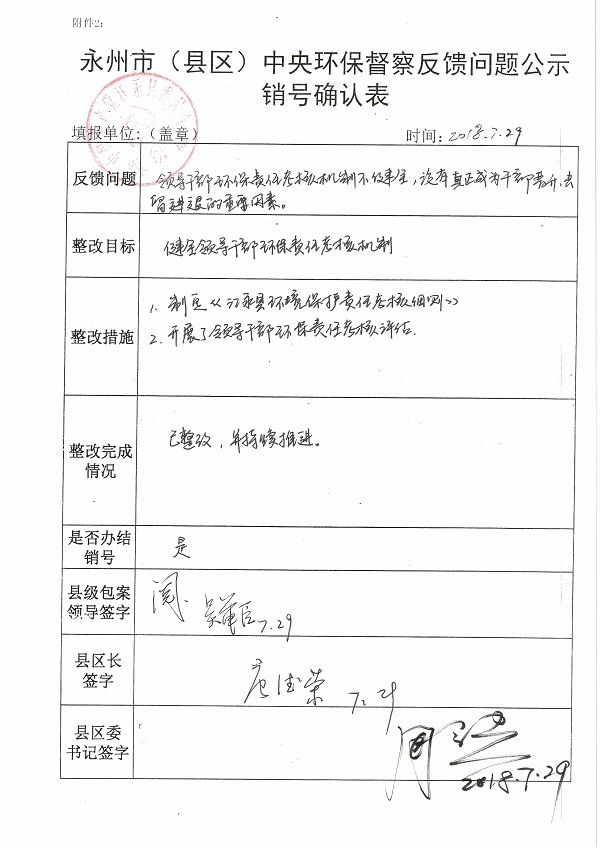 附件2：
永州市（县区）中央环保督察反馈问题公示
销号确认表
填报单位：（盖章）
时间：2018.7.29
反馈问题
领导干部环保责任考核机制不健全，没有真正成为干部晋升、去
留进退的重要因素。
整改目标
健全领导干部环保责任考核机制
整改措施
1. 制定《江永县环境保护责任考核细则》
2. 开展了领导干部环保责任考核评估.
整改完成
情况
已整改，并持续推进。
是否办结
销号
是
县级包案
领导签字
阅.
7.29
县区长
签字
唐德荣 7.29
县区委
书记签字
周
2018.7.29